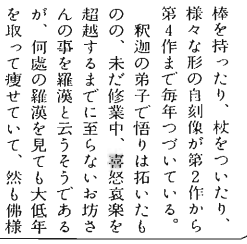 棒を持ったり、杖をついたり、
様々な形の自刻像が第2作から
第4作まで毎年つづいている。
　釈迦の弟子で悟りは拓いたも
のの、未だ修業中、喜怒哀楽を
超越するまでに至らないお坊さ
んの事を羅漢と云うそうである
が、何處の羅漢を見ても大低年
を取って痩せていて、然も佛様